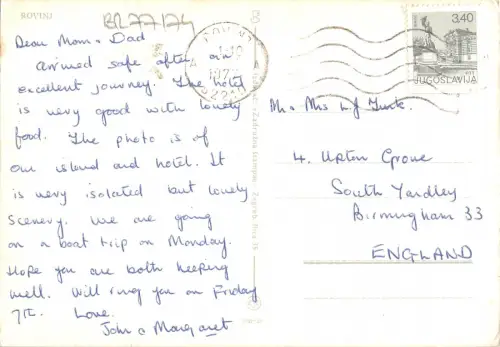 ROVINJ
BR 77/174
Dear Mom & Dad
Arrived safe after an
excellent journey. The hotel
is very good with lovely
food. The photo is of
our island and hotel. It
is very isolated but lovely
scenery. We are going
on a boat trip on Monday.
Hope you are both keeping
well. Will ring you on Friday
7th. Love.
John & Margaret
3,40
JUGOSLAVIJA
Mr & Mrs
4. Upton Grove
South Yardley
Birmingham 33
ENGLAND